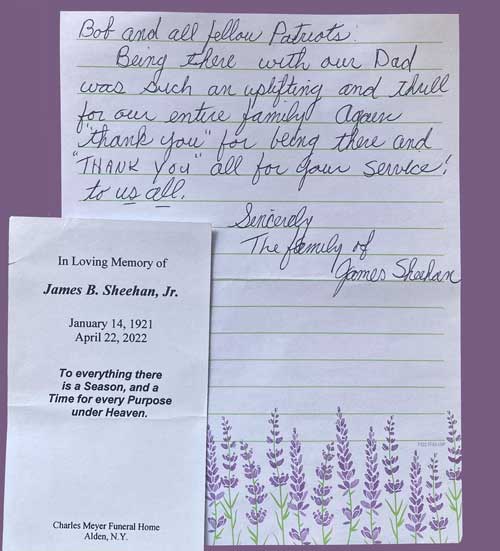 Bob and all fellow Patriots:
Being there with our Dad
was such an uplifting and thrill
for our entire family. Again
"thank you" for being there and
"THANK YOU" all for your service!
to us all.
Sincerely
The family of
James Sheehan
In Loving Memory of
James B. Sheehan, Jr.
January 14, 1921
April 22, 2022
To everything there
is a Season, and a
Time for every Purpose
under Heaven.
Charles Meyer Funeral Home
Alden, N.Y.